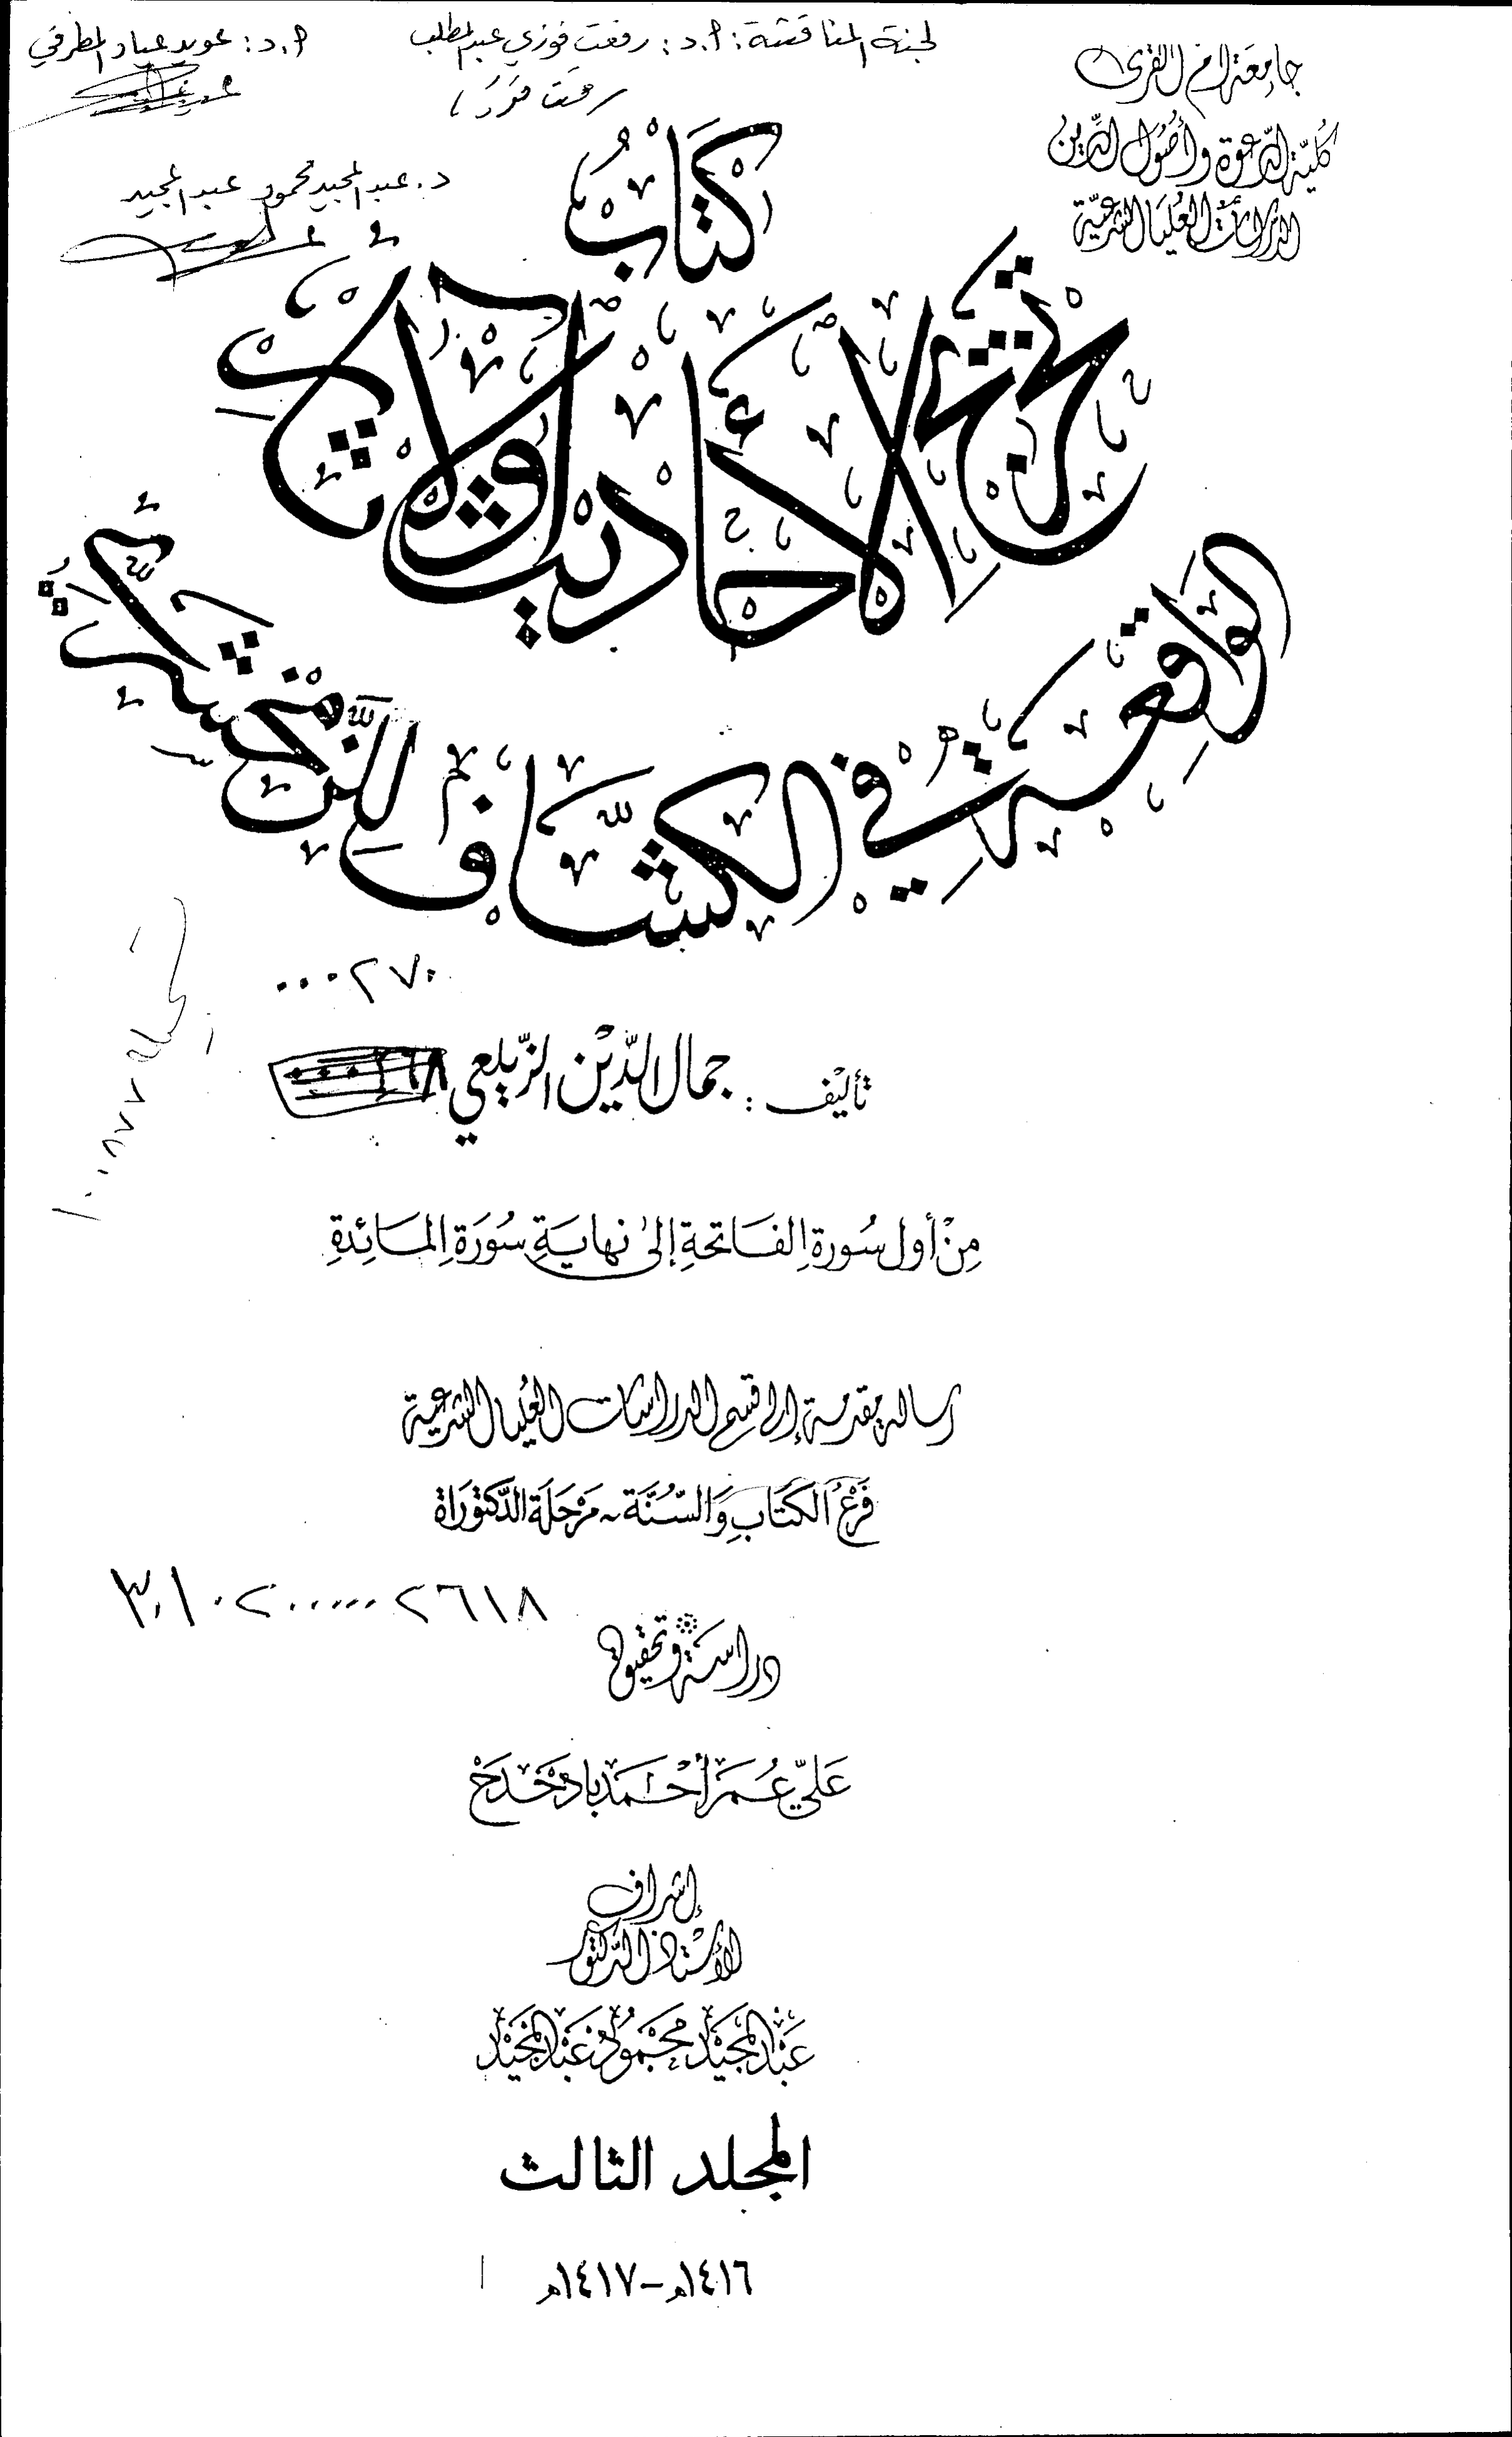 جامعة أم القرى
كلية الدعوة وأصول الدين
الدراسات العليا الشرعية
لجنة المناقشة: أ.د: رفعت فوزي عبد المطلب
أ.د: عويد عياد المطرفي
رفعت فوزي
د. عبد المجيد محمود عبد المجيد
كتاب
تخريج الأحاديث والآثار
الواقعة في الكشاف للزمخشري
٠٠٠٢٧٠
تأليف: جمال الدين الزيلعي
من أول سورة الفاتحة إلى نهاية سورة المائدة
رسالة مقدمة إلى قسم الدراسات العليا الشرعية
فرع الكتاب والسنة - مرحلة الدكتوراة
دراسة وتحقيق
علي عمر أحمد بادحدح
إشراف
الأستاذ الدكتور
عبد المجيد محمود عبد المجيد
المجلد الثالث
١٤١٦هـ - ١٤١٧هـ